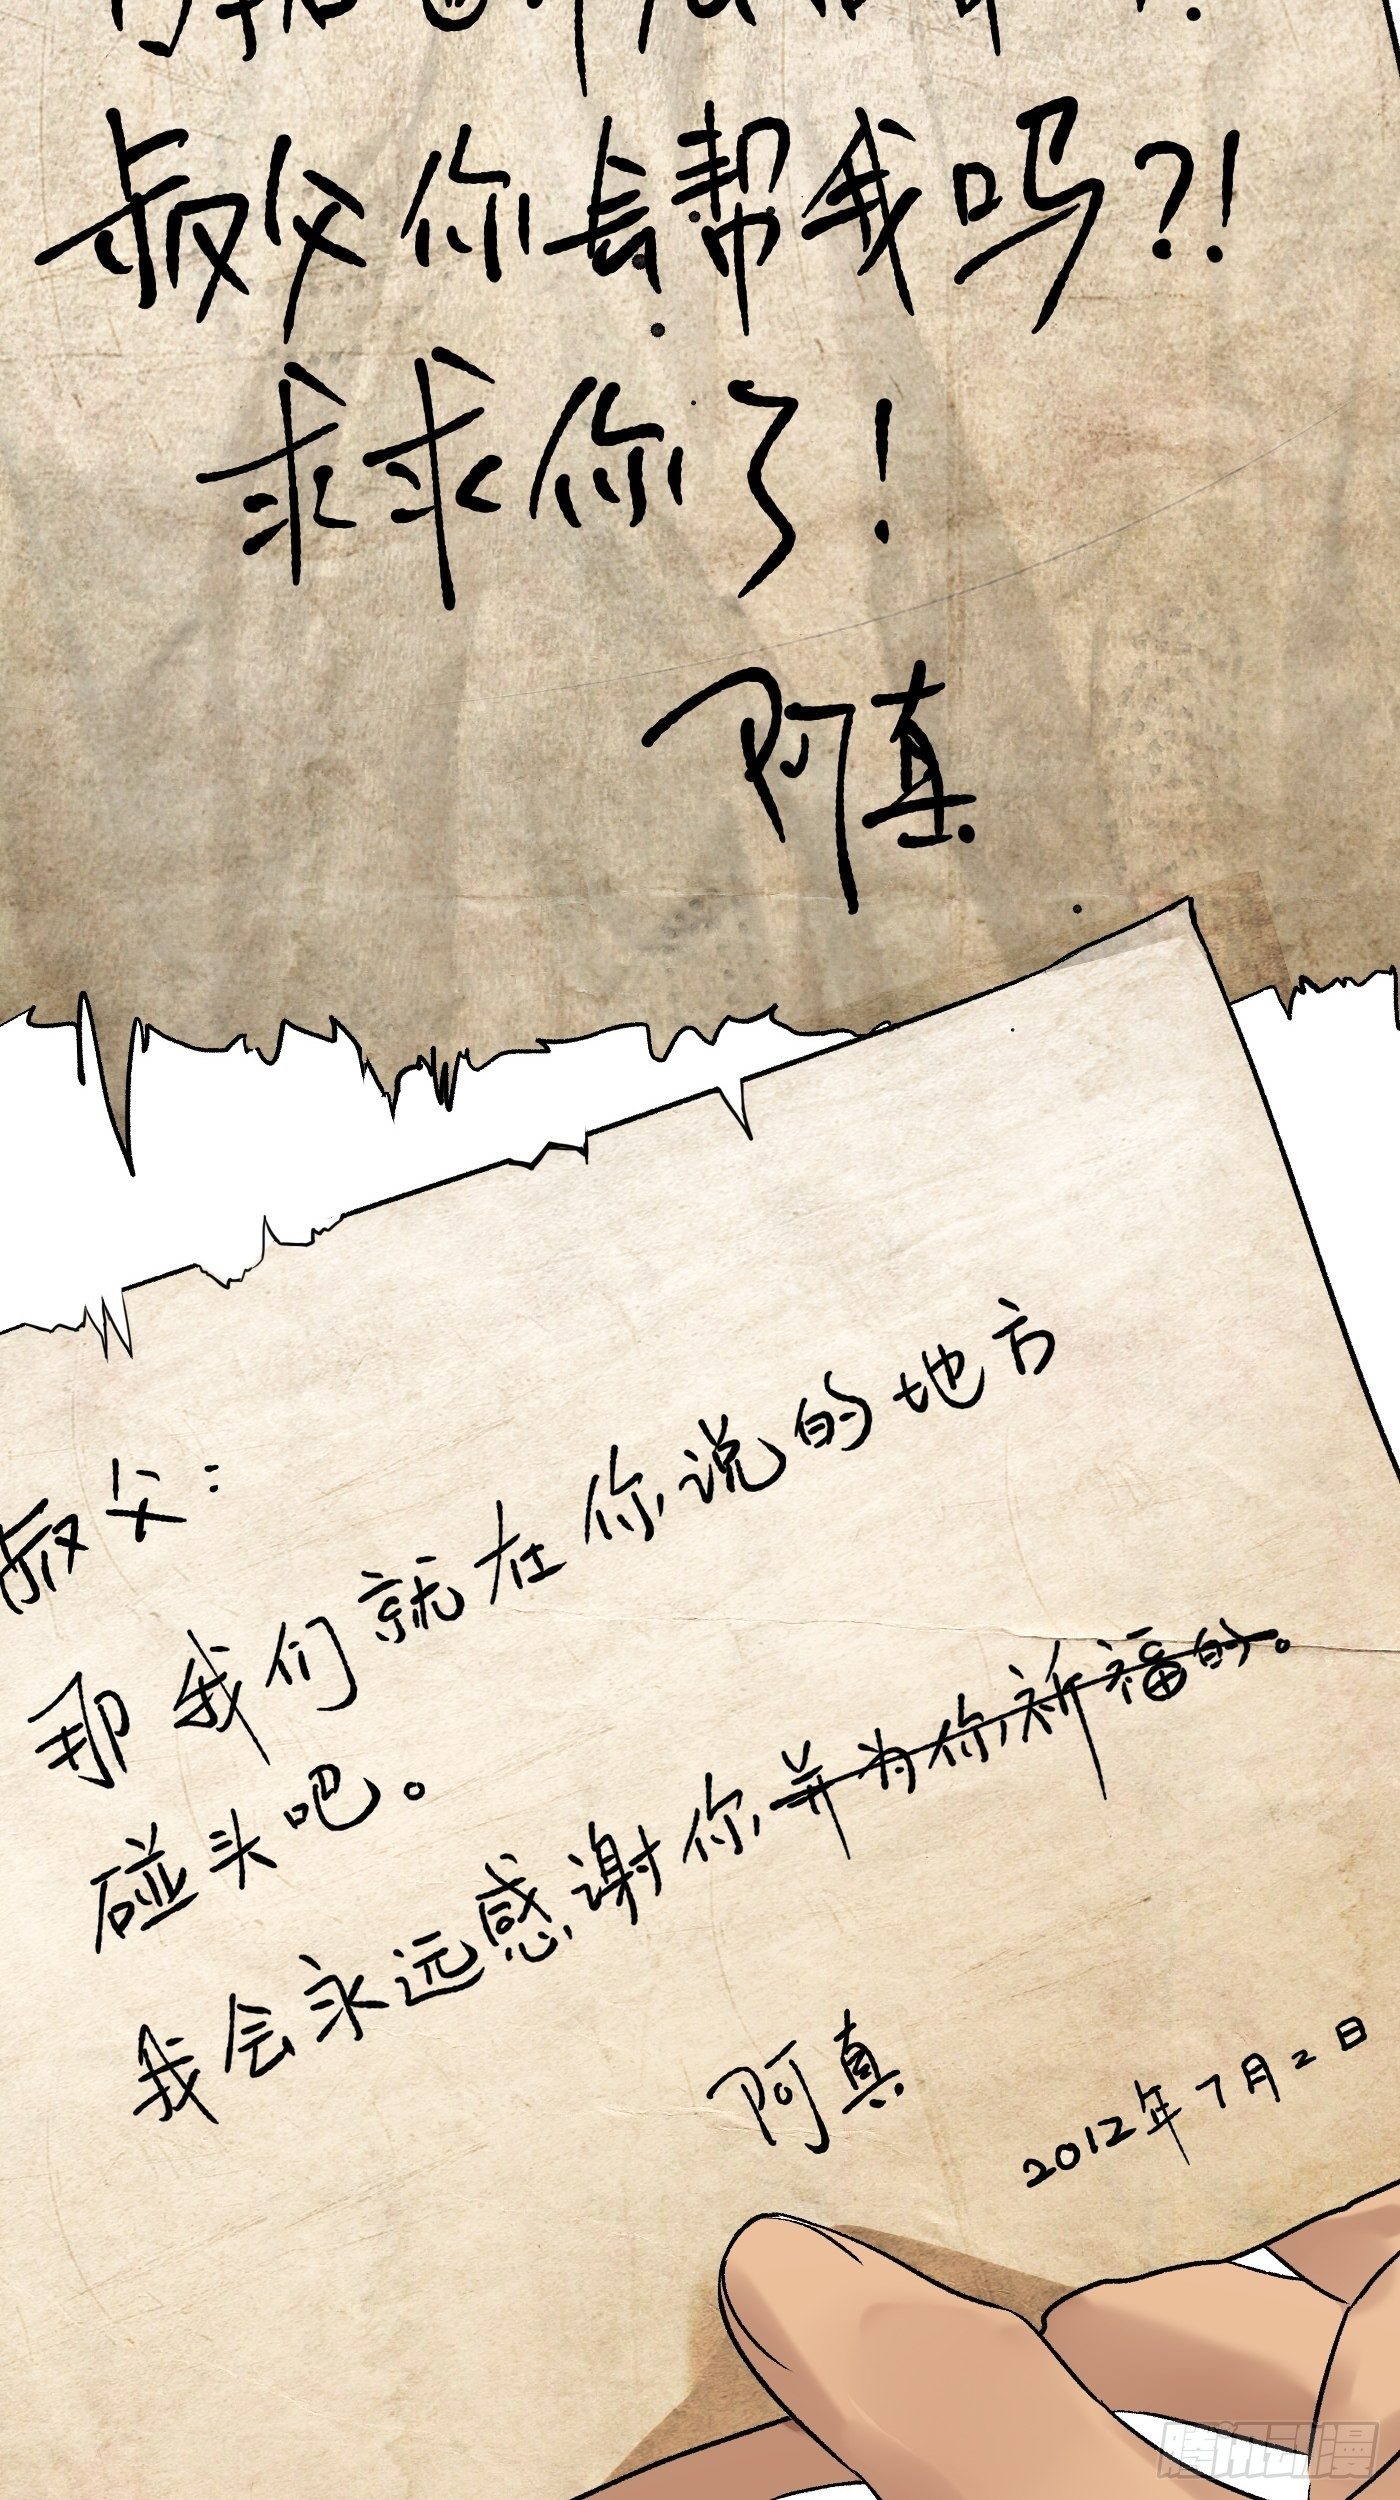 叔父你去帮我吗?!
求求你了!
阿真
叔父:
那我们就在你说的地方
碰头吧。
我会永远感谢你并为你祈福的。
阿真
2012年7月2日
腾讯动漫